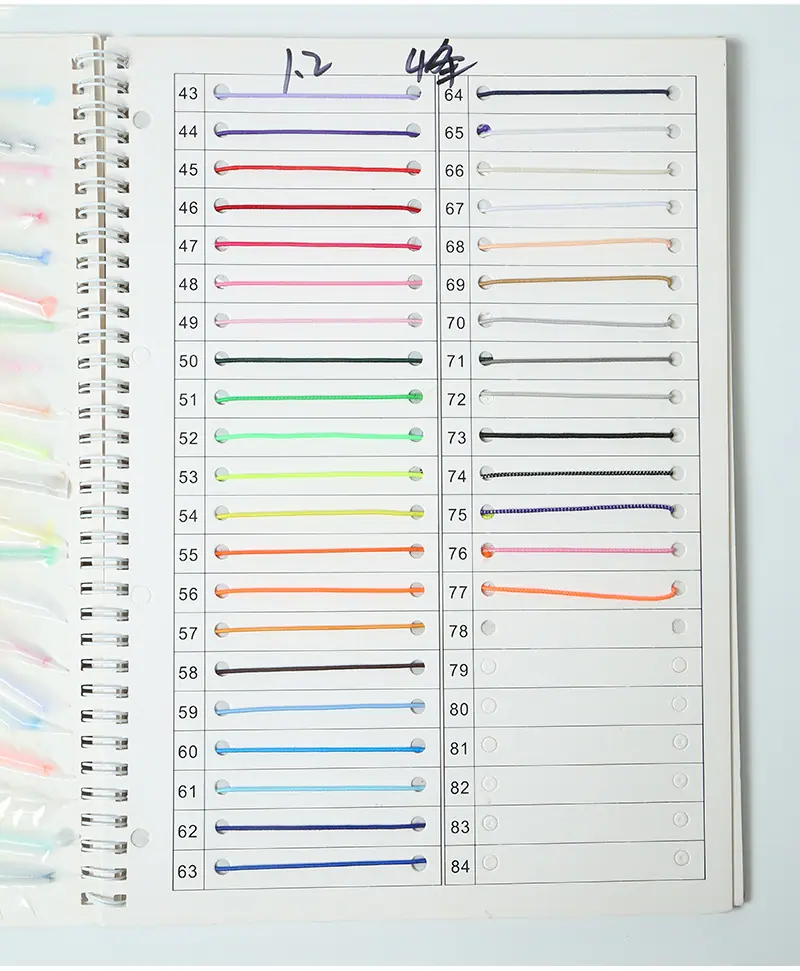 1.2 4
43
44
45
46
47
48
49
50
51
52
53
54
55
56
57
58
59
60
61
62
63
64
65
66
67
68
69
70
71
72
73
74
75
76
77
78
79
80
81
82
83
84